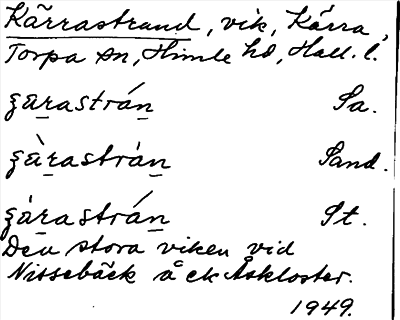 Kärrastrand, vik, Kärra,
Torpa sn, Himle hd, Hall. l.
ʒa̱rastrán̠ Sa.
ʒàr̠astràn̠ Sand.
ʒár̠astrán̠ St.
Den stora viken vid
Nissebäck å ck Åskloster.
1949.